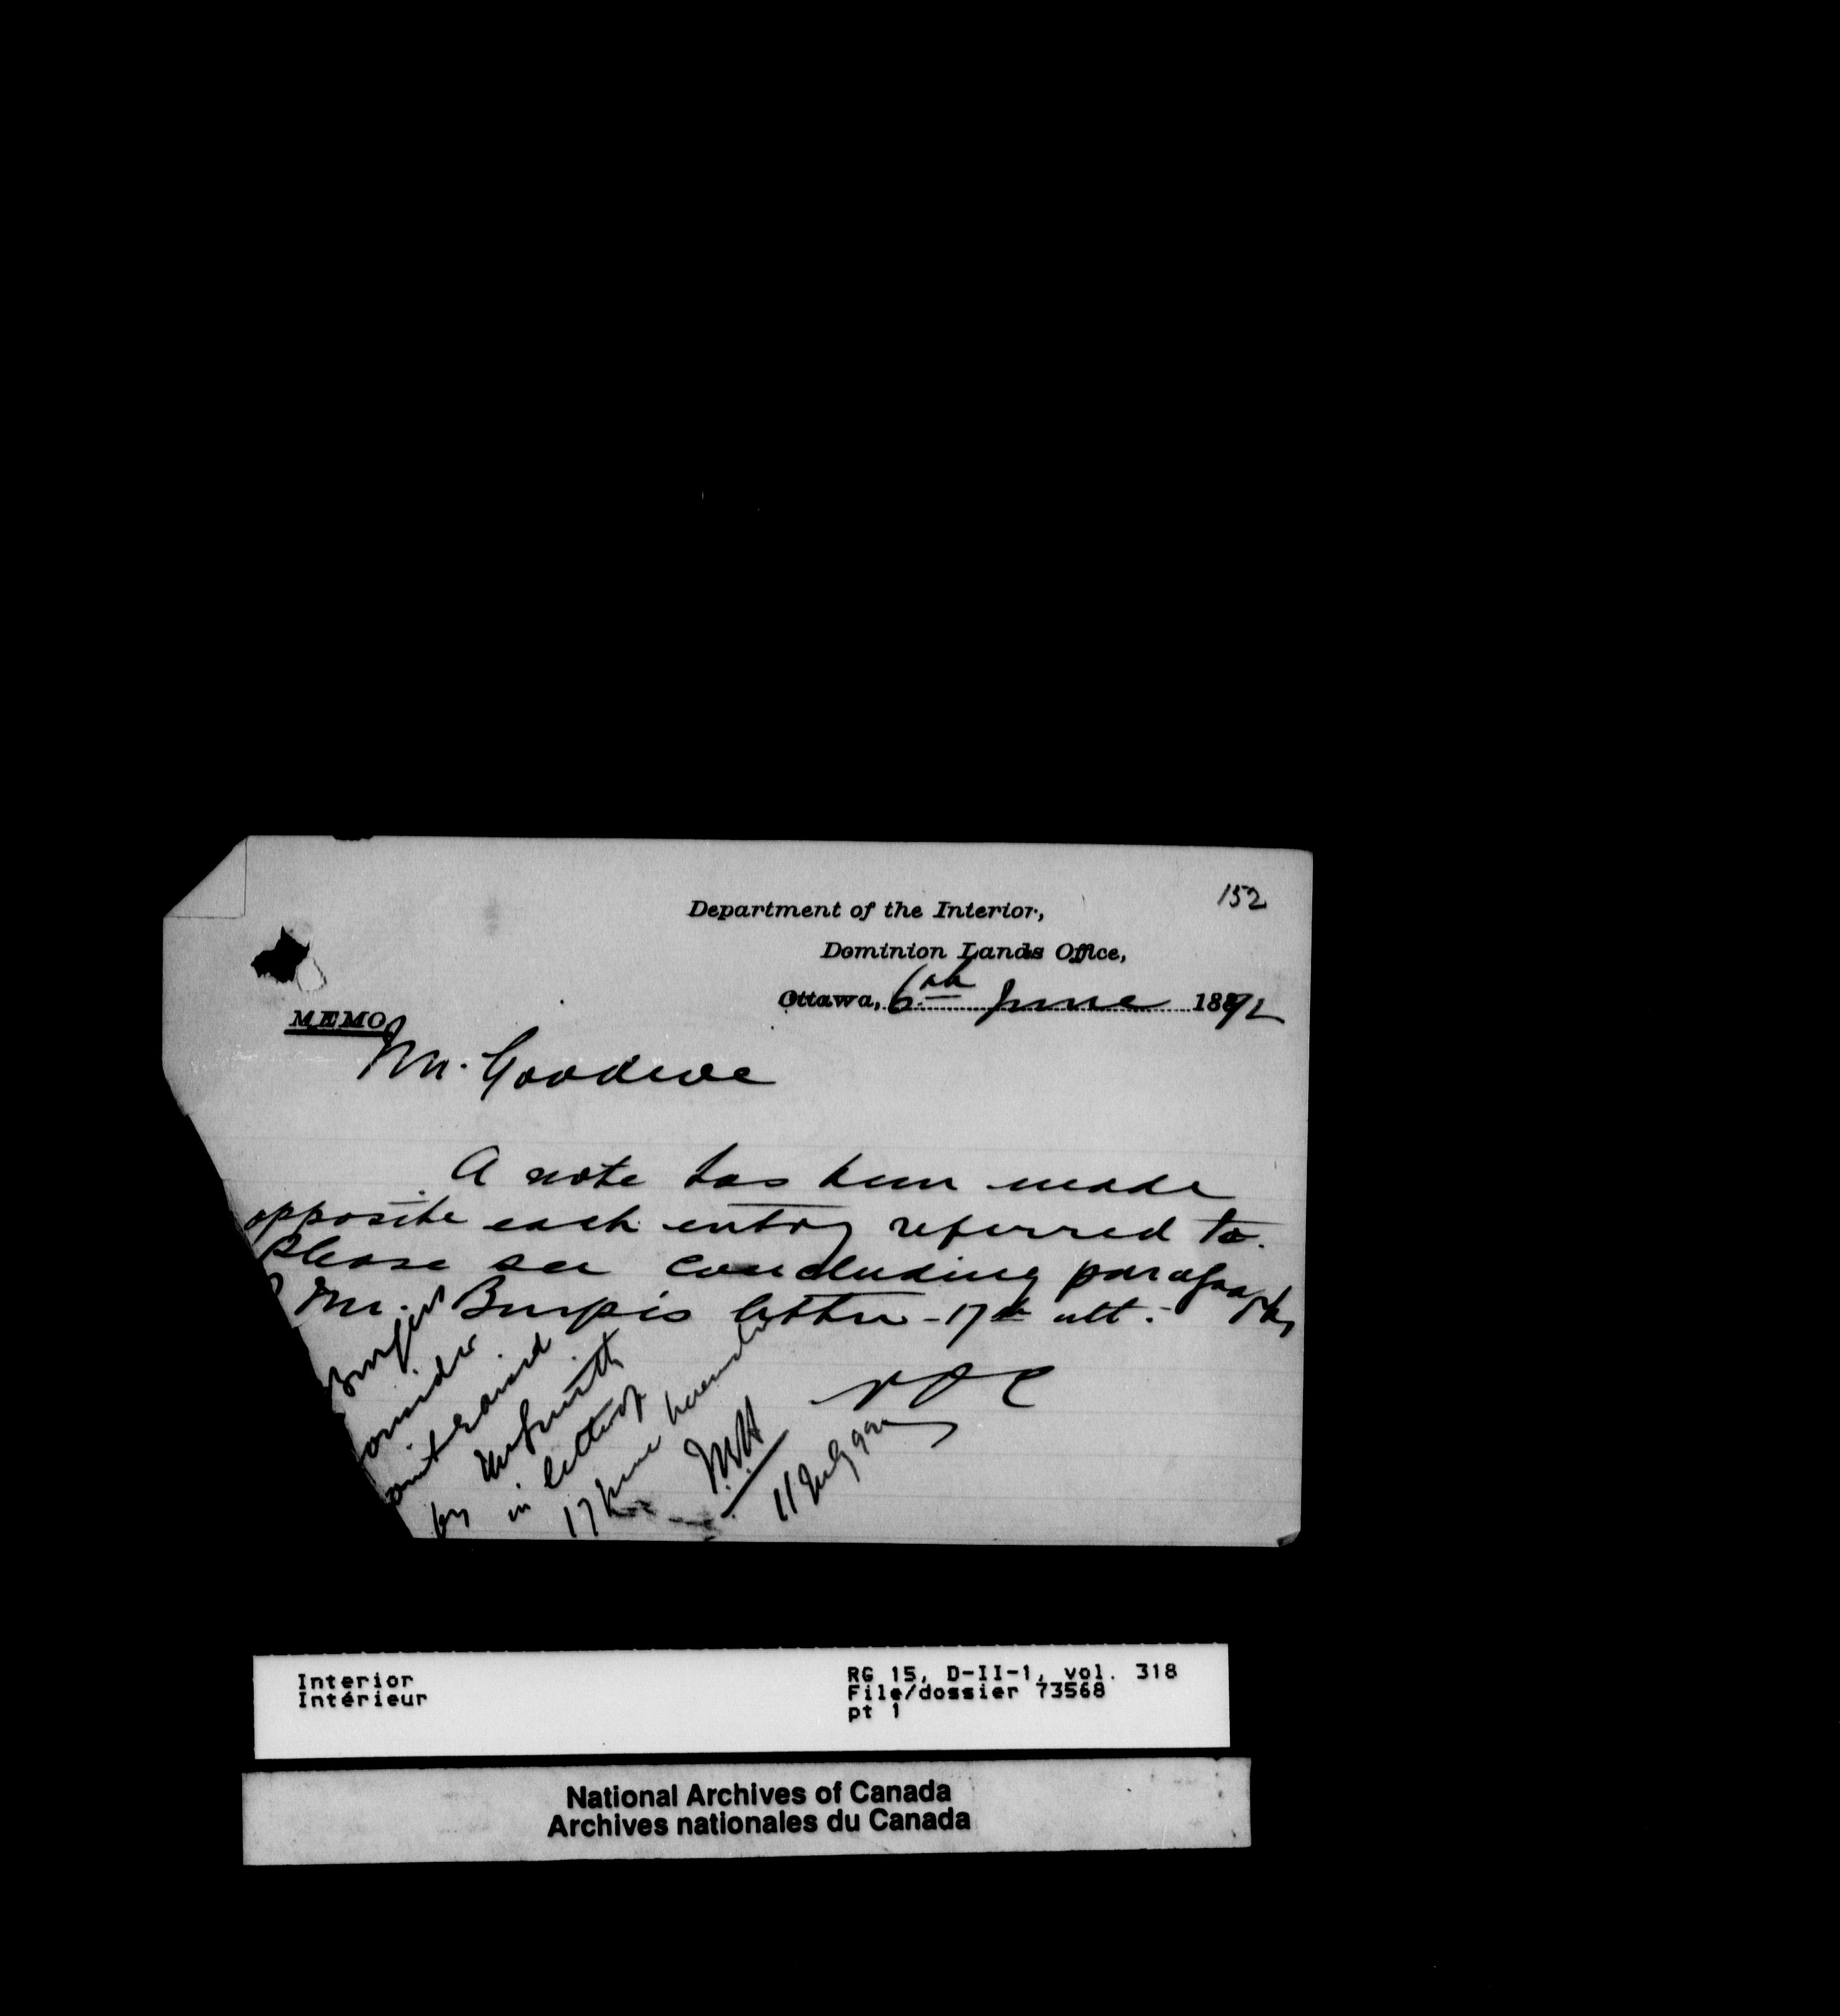 152
Department of the Interior,
Dominion Lands Office,
Ottawa, 6th June 1892
MEMO
Mr. Goodeve
A note has been made
opposite each entry referred to.
Please see concluding paragraph
Mr. Burpé's letter - 17th ult.
raised
by Mr Smith
in letter of
17 June
11 July 92
Interior
Intérieur
RG 15, D-II-1, vol. 318
File/dossier 73568
pt 1
National Archives of Canada
Archives nationales du Canada